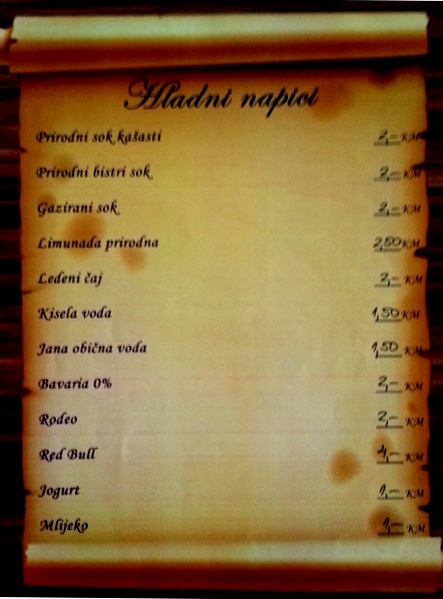 Hladni napici
Prirodni sok kašasti 2,- KM
Prirodni bistri sok 2,- KM
Gazirani sok 2,- KM
Limunada prirodna 2,50 KM
Ledeni čaj 2,- KM
Kisela voda 1,50 KM
Jana obična voda 1,50 KM
Bavaria 0% 2,- KM
Rodeo 2,- KM
Red Bull 4,- KM
Jogurt 1,- KM
Mlijeko 1,- KM